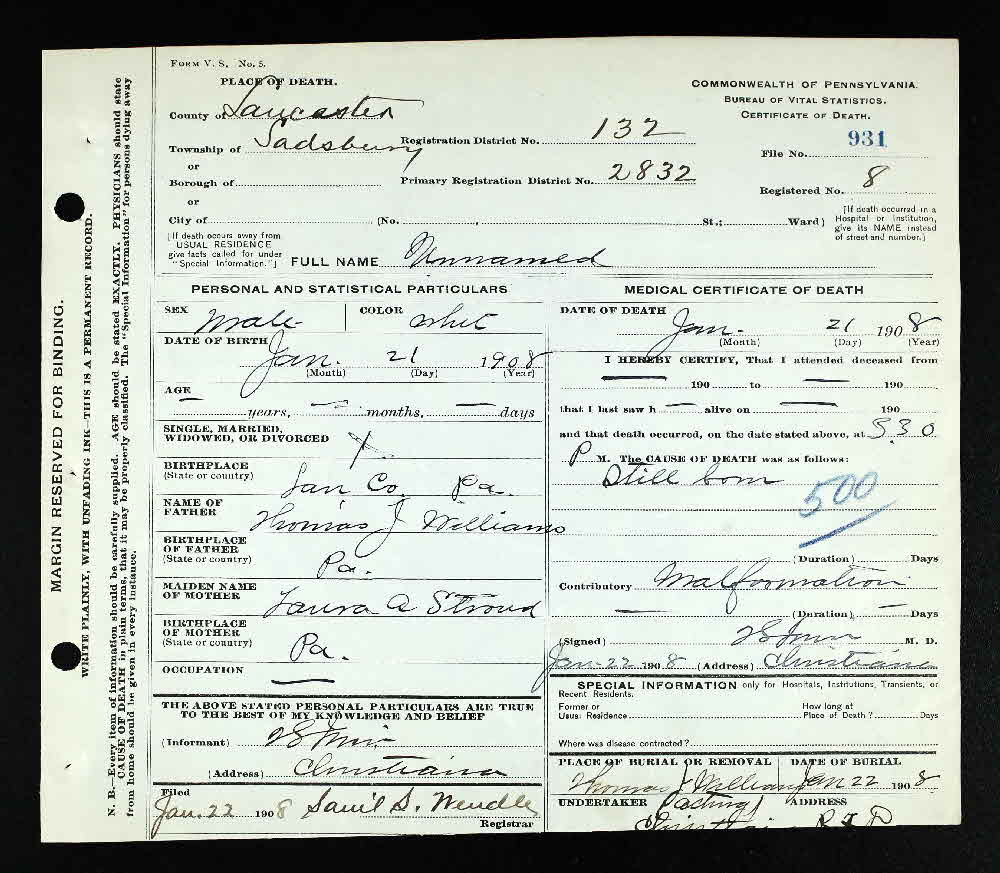 FORM V. S. No. 5.
PLACE OF DEATH.
County of Lancaster
Township of Sadsbury
or
Borough of
or
City of
Registration District No. 132
Primary Registration District No. 2832
(No. , St.; Ward)
COMMONWEALTH OF PENNSYLVANIA.
BUREAU OF VITAL STATISTICS.
CERTIFICATE OF DEATH.
931
File No.
Registered No. 8
[If death occurred in a
Hospital or Institution,
give its NAME instead
of street and number.]
[If death occurs away from
USUAL RESIDENCE
give facts called for under
"Special Information."]
FULL NAME Unnamed
MARGIN RESERVED FOR BINDING.
WRITE PLAINLY, WITH UNFADING INK—THIS IS A PERMANENT RECORD.
N. B.—Every item of information should be carefully supplied. AGE should be stated EXACTLY. PHYSICIANS should state
CAUSE OF DEATH in plain terms, that it may be properly classified. The "Special Information" for persons dying away
from home should be given in every instance.
PERSONAL AND STATISTICAL PARTICULARS
SEX Male COLOR whit
DATE OF BIRTH Jan. 21 1908
(Month) (Day) (Year)
AGE
years, months, days
SINGLE, MARRIED,
WIDOWED, OR DIVORCED
BIRTHPLACE
(State or country) Lan Co. Pa.
NAME OF
FATHER Thomas J Williams
BIRTHPLACE
OF FATHER
(State or country) Pa.
MAIDEN NAME
OF MOTHER Laura A Stroud
BIRTHPLACE
OF MOTHER
(State or country) Pa.
OCCUPATION
THE ABOVE STATED PERSONAL PARTICULARS ARE TRUE
TO THE BEST OF MY KNOWLEDGE AND BELIEF
(Informant)
(Address) Christiana
Filed
Jan. 22 1908 Saml S. Wendle
Registrar
MEDICAL CERTIFICATE OF DEATH
DATE OF DEATH Jan. 21 1908
(Month) (Day) (Year)
I HEREBY CERTIFY, That I attended deceased from
190 to 190
that I last saw h alive on 190
and that death occurred, on the date stated above, at 5.30
P M. The CAUSE OF DEATH was as follows:
Still born
500
(Duration) Days
Contributory Malformation
(Duration) Days
(Signed) M. D.
Jan-22 1908 (Address) Christiana
SPECIAL INFORMATION only for Hospitals, Institutions, Transients, or
Recent Residents.
Former or
Usual Residence
How long at
Place of Death? Days
Where was disease contracted?
PLACE OF BURIAL OR REMOVAL DATE OF BURIAL
Thomas J Williams Jan 22 1908
UNDERTAKER (acting) ADDRESS
Christiana R F D